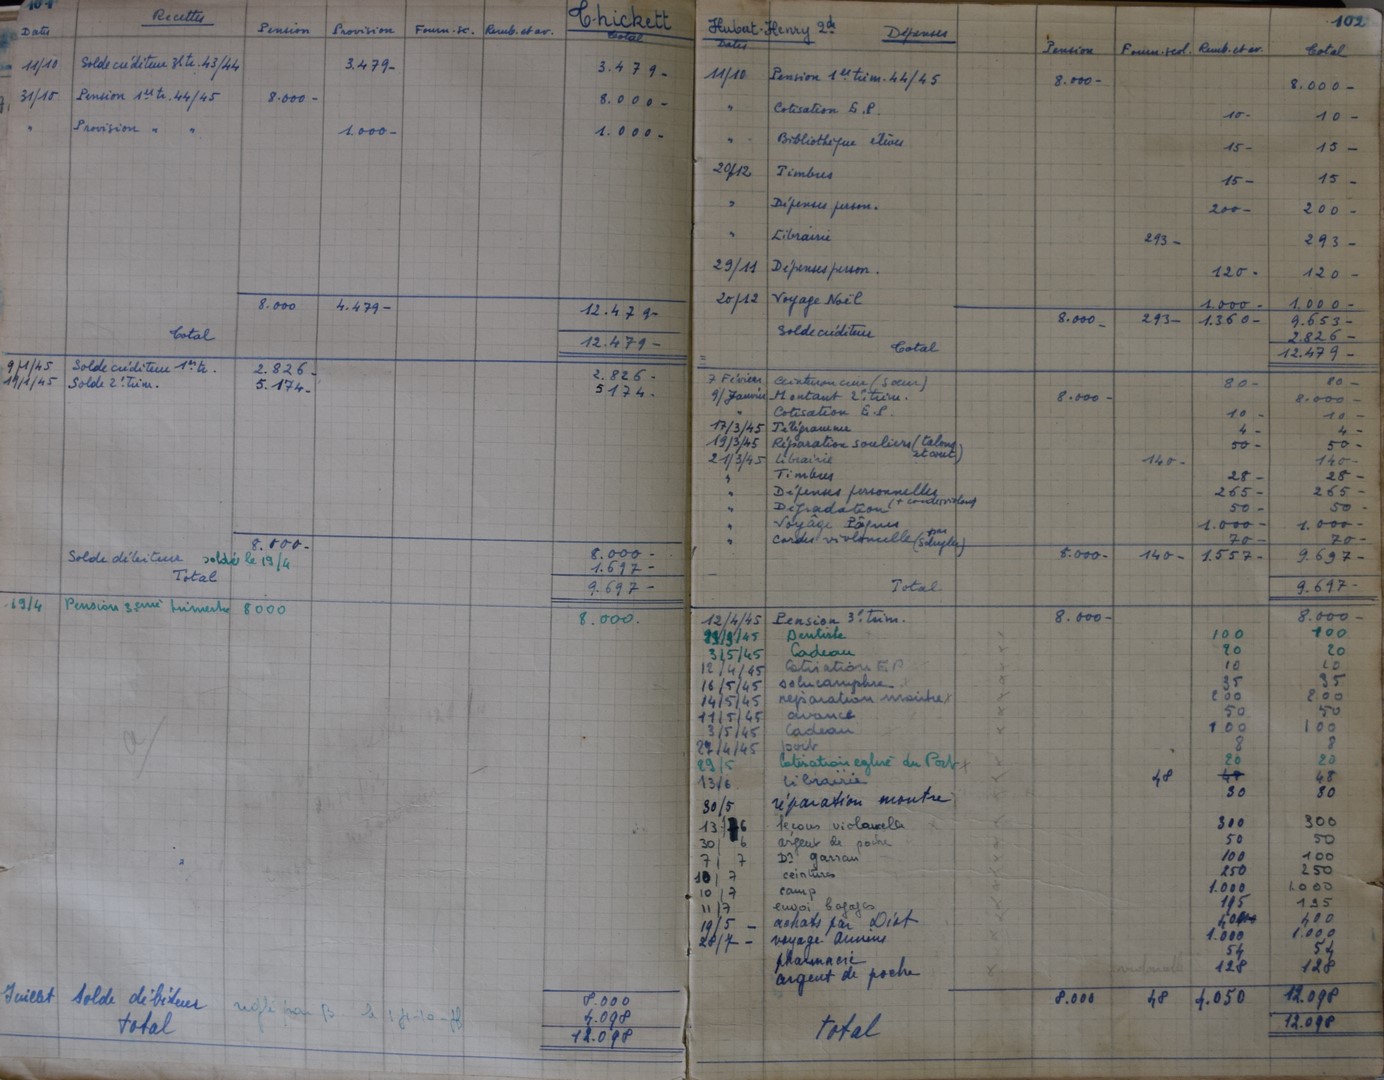 101 Recettes Chickett
Dates Pension Provision Fourn. sc. Remb. et av. Total
11/10 Solde créditeur 3e tr. 43/44 3.479- 3.479-
31/10 Pension 1er tr. 44/45 8.000- 8.000-
" Provision " " 1.000- 1.000-
8.000 4.479- 12.479-
Total 12.479-
9/1/45 Solde créditeur 1er tr. 2.826- 2.826-
19/1/45 Solde 2e trim. 5.174- 5174-
8.000-
8.000-
Solde débiteur soldé le 19/4 1.697-
Total 9.697-
19/4 Pension 3eme trimestre 8000 8.000.
Juillet Solde débiteur 8.000
4.098
total 12.098
102
Hubert-Henry 2d Dépenses
Dates Pension Fourn. scol. Remb. et av. Total
11/10 Pension 1er trim. 44/45 8.000- 8.000-
" Cotisation E.P. 10- 10-
" Bibliothèque élèves 15- 15-
20/12 Timbres 15- 15-
" Dépenses person. 200- 200-
" Librairie 293- 293-
29/11 Dépenses person. 120- 120-
20/12 Voyage Noël 1.000- 1.000-
8.000- 293- 1.360- 9.653-
Solde créditeur 2.826-
Total 12.479-
7 Février Ceinturon cuir (Soeur) 80- 80-
9/Janvier Montant 2e trim. 8.000- 8.000-
" Cotisation E.P. 10- 10-
17/3/45 Télégramme 4- 4-
19/3/45 Réparation souliers (talons 50- 50-
21/3/45 Librairie 140- 140-
" Timbres 28- 28-
" Dépenses personnelles 265- 265-
" Dégradation 50- 50-
" Voyâge Pâques 1.000- 1.000-
" Cordes violoncelle 70- 70-
8.000- 140- 1.557- 9.697-
Total 9.697-
12/4/45 Pension 3e trim. 8.000- 8.000-
Dentiste 100 100
3/5/45 Cadeau 20 20
12/4/45 Cotisation E.P 10 10
16/5/45 solucamphre 35 35
14/5/45 réparation montre 200 200
11/5/45 avance 50 50
3/5/45 Cadeau 100 100
27/4/45 port 8 8
29/5 Cotisation eglise du Port 20 20
13/6 Librairie 48 48 48
30/5 réparation montre 30 30
13/6 leçons violoncelle 300 300
30/6 argent de poche 50 50
7/7 Dr garrau 100 100
10/7 ceintures 250 250
10/7 camp 1.000 1.000
11/7 envoi bagages 195 195
19/5 - achats par Diet 400 400
28/7 - voyage 1.000 1.000
pharmacie 54 54
argent de poche 128 128
8.000 48 4.050 12.098
total 12.098